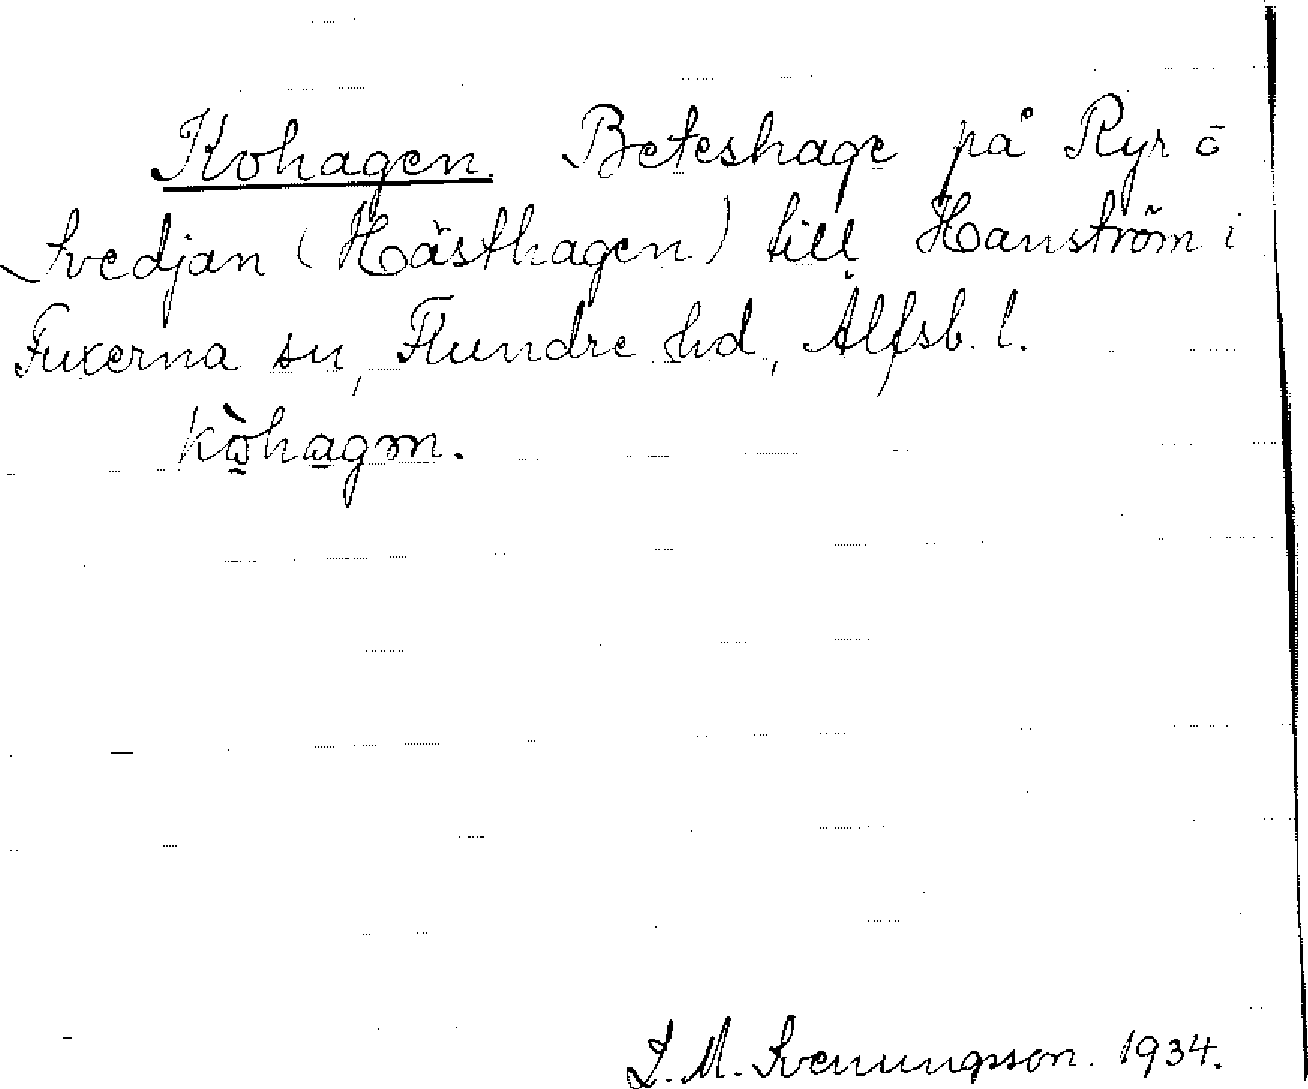 Kohagen. Beteshage på Ryr o
Svedjan (Hästhagen) till Hanström i
Fuxerna sn, Flundre hd, Älfsb. l.
kòhagm.
S. M. Svenungsson. 1934.